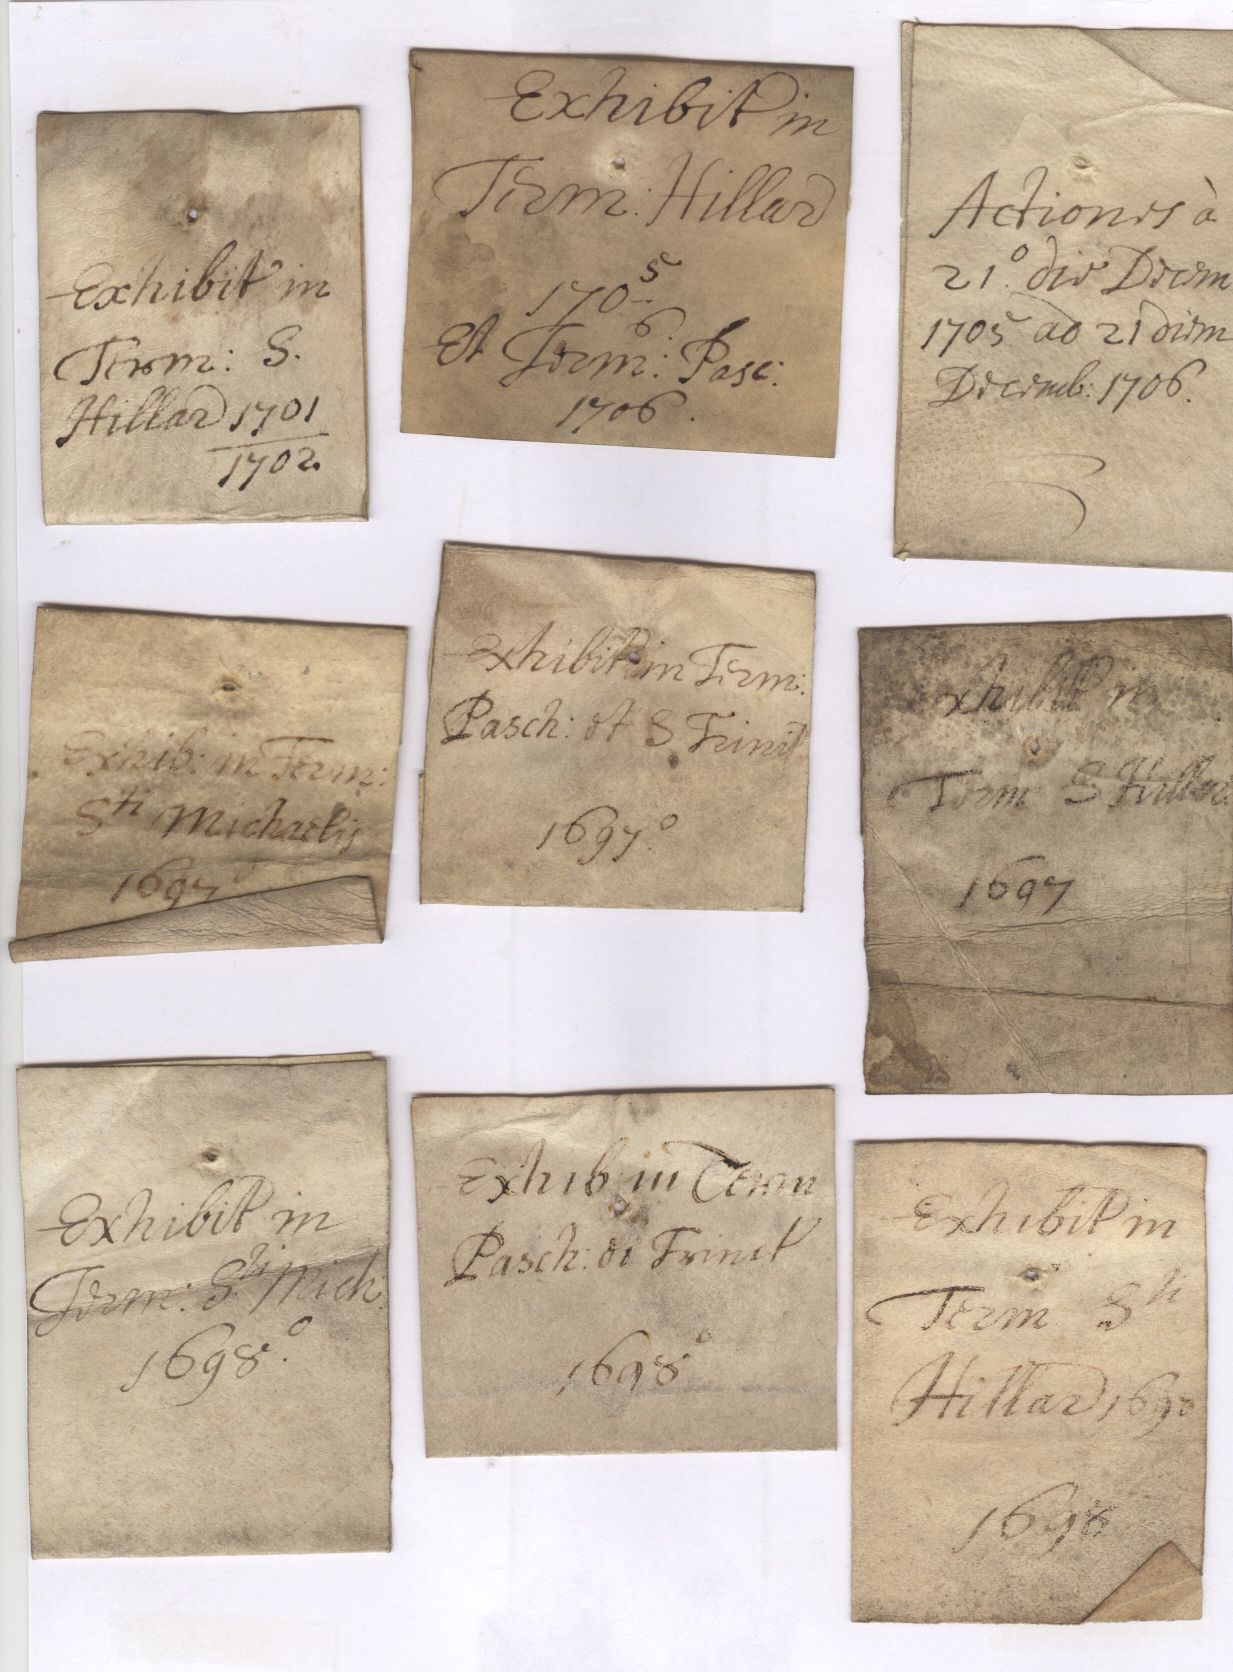 Exhibit in
Term: S.
Hillar 1701
1702.
Exhibit in
Term: Hillar
170 5/6
Et Term: Pasc:
1706.
Actiones à
21.o die Decem
1705 ad 21 diem
Decemb: 1706.
Exhib: in Term:
Sti Michaelis
1697o
Exhibit in Term:
Pasch: et S Trinit
1697.o
Exhibit in
Term S Hillar
1697
Exhibit in
Term: Sti Mich:
1698.o
Exhib in Term
Pasch: et Trinit
1698o
Exhibit in
Term Sti
Hillar
1698